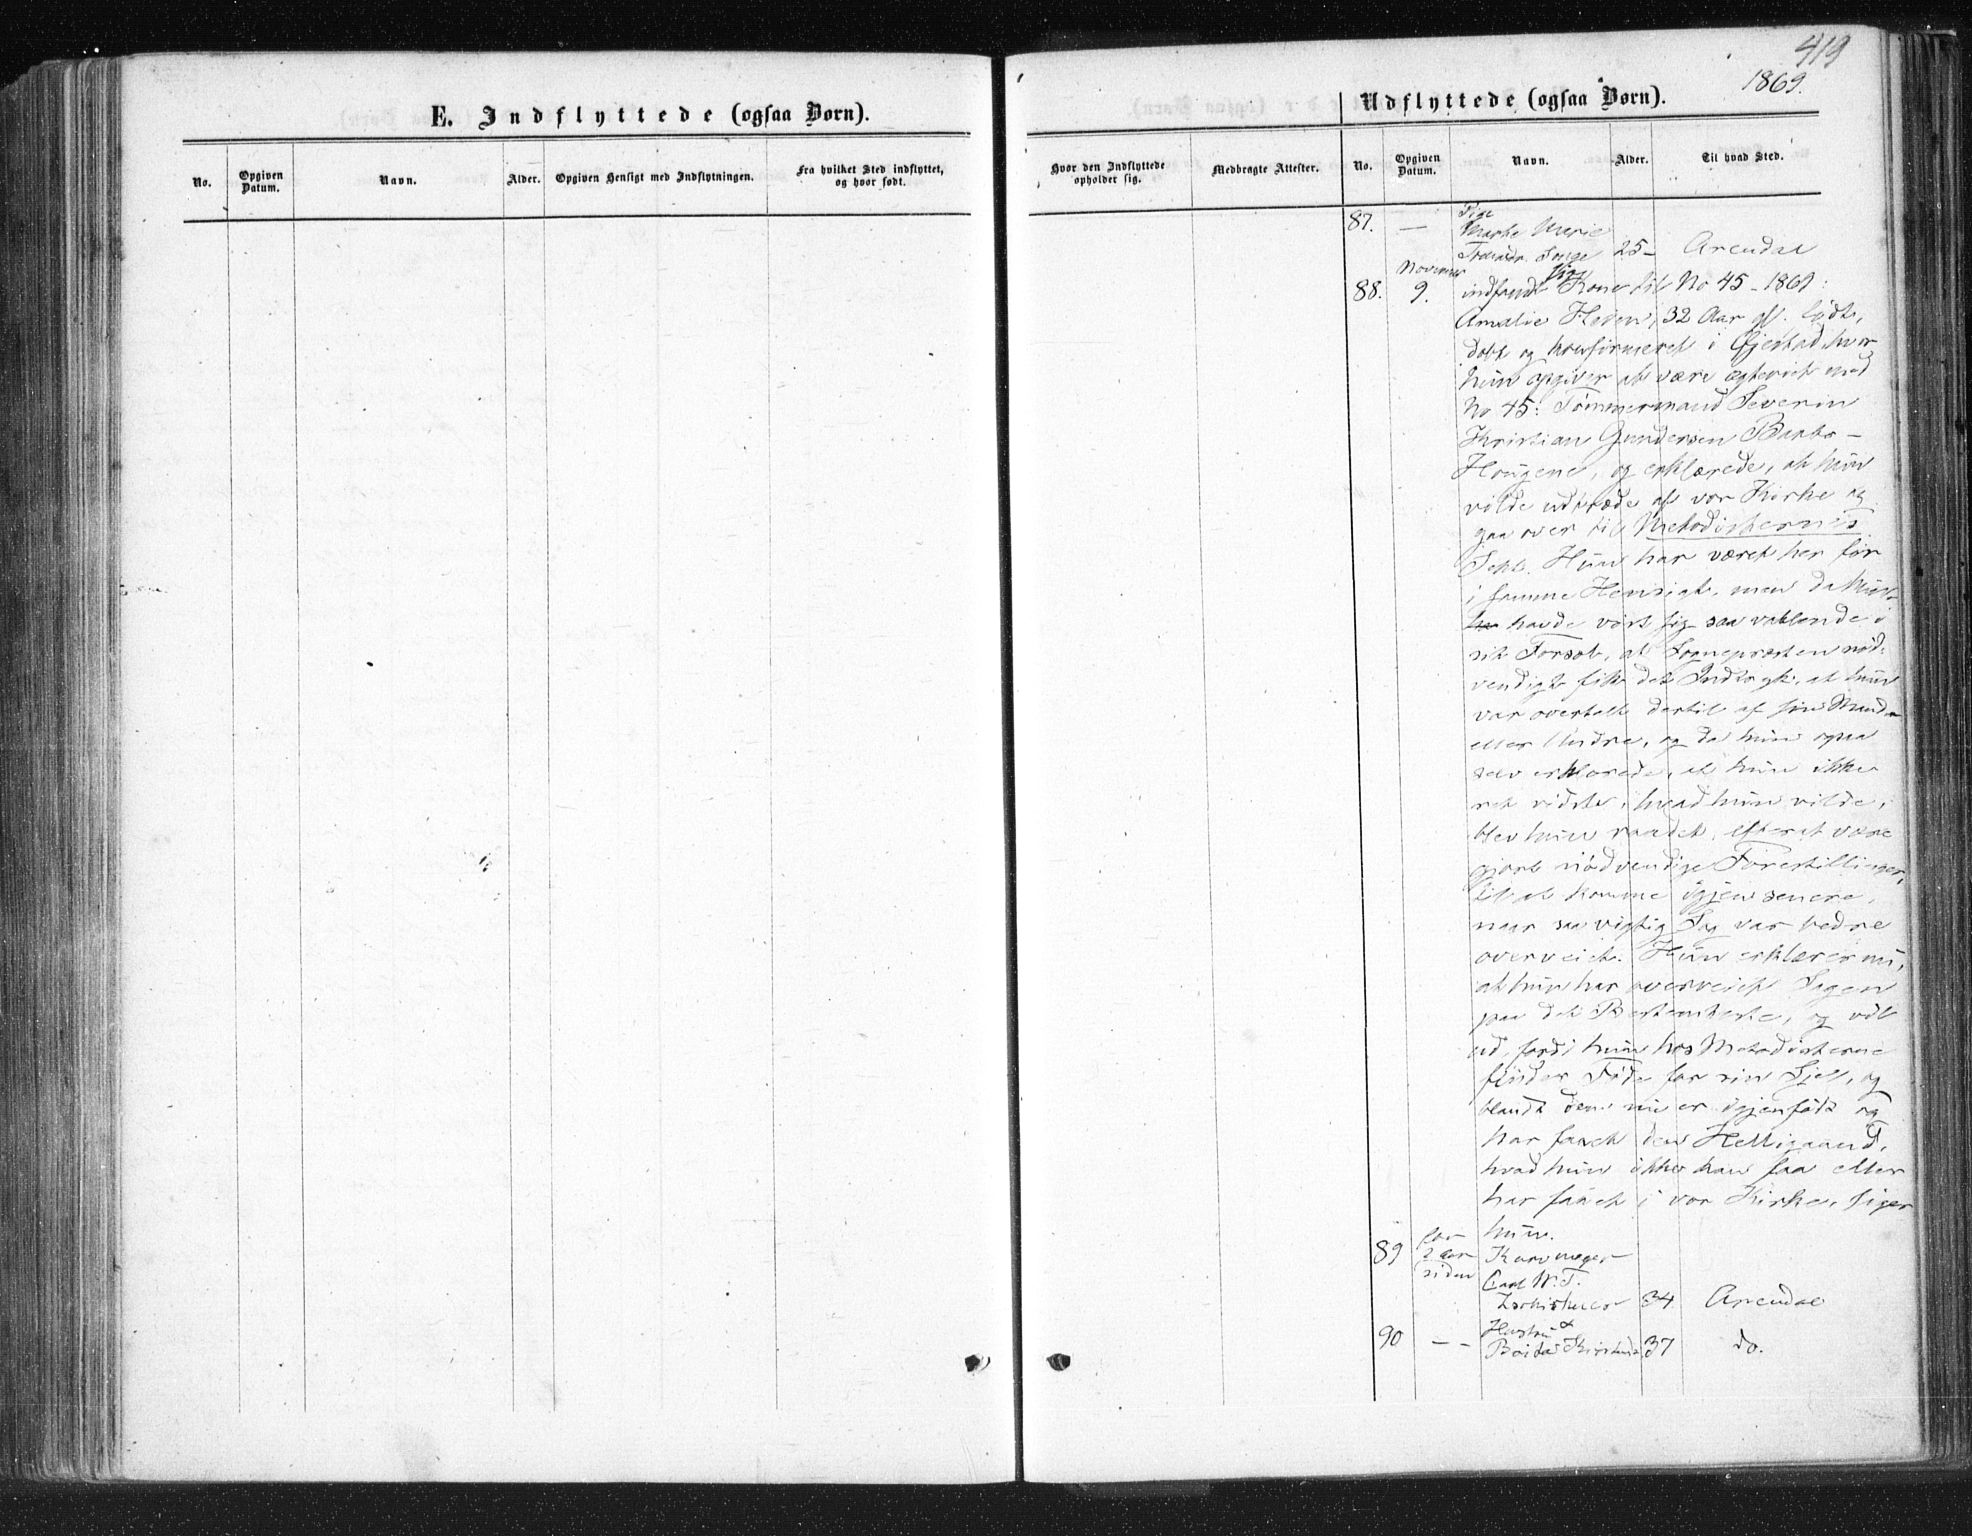 419
1869.
E. Indflyttede (ogsaa Børn).
Udflyttede (ogsaa Børn).
No.
Opgiven Datum.
Navn.
Alder.
Opgiven Hensigt med Indflytningen.
Fra hvilket Sted indflyttet, og hvor født.
Hvor den Indflyttede opholder sig.
Medbragte Attester.
No.
Opgiven Datum.
Navn.
Alder.
Til hvad Sted.
Pige
87. — Marthe Marie
25 – Arendal
November
88. 9. indfandt sig Kone til No 45 – 1869:
Amalie Heden, 32 Aar gl.
døbt og konfirmeret i Øjestad, hvor
hun opgiver at være ægteviet med
No 45: Tømmermand Severin
Kristian Gundersen Barbo –
Hougene, og erklærede, at hun
vilde udtræde af vor Kirke og
gaa over til Methodisternes
Sekt. Hun har været her før
i samme Hensigt, men da hun
havde vist sig saa vaklende i
sit Forsæt, at Sognepræsten nød-
vendigt fik det Indtryk, at hun
var overtalt dertil af sin Mand
eller Andre, og da hun ogsaa
selv erklærede, at hun ikke
ret vidste, hvad hun vilde,
blev hun raadet, efter at være
gjort nødvendige Forestillinger,
til at komme igjen senere,
naar saa vigtig Sag var bedre
overveiet. Hun erklærer nu,
at hun har overveiet Sagen
paa det Bestemteste, og vil
ud, fordi hun hos Methodisterne
finder Føde for sin Sjel, og
blandt dem nu er igjenfødt og
har faaet den Helligaand,
hvad hun ikke kan faa eller
har faaet i vor Kirke, siger
hun.
89 for 2 Aar siden Kurvmager
Carl W. T.
34 Arendal
Hustru
90 – – 37 do.